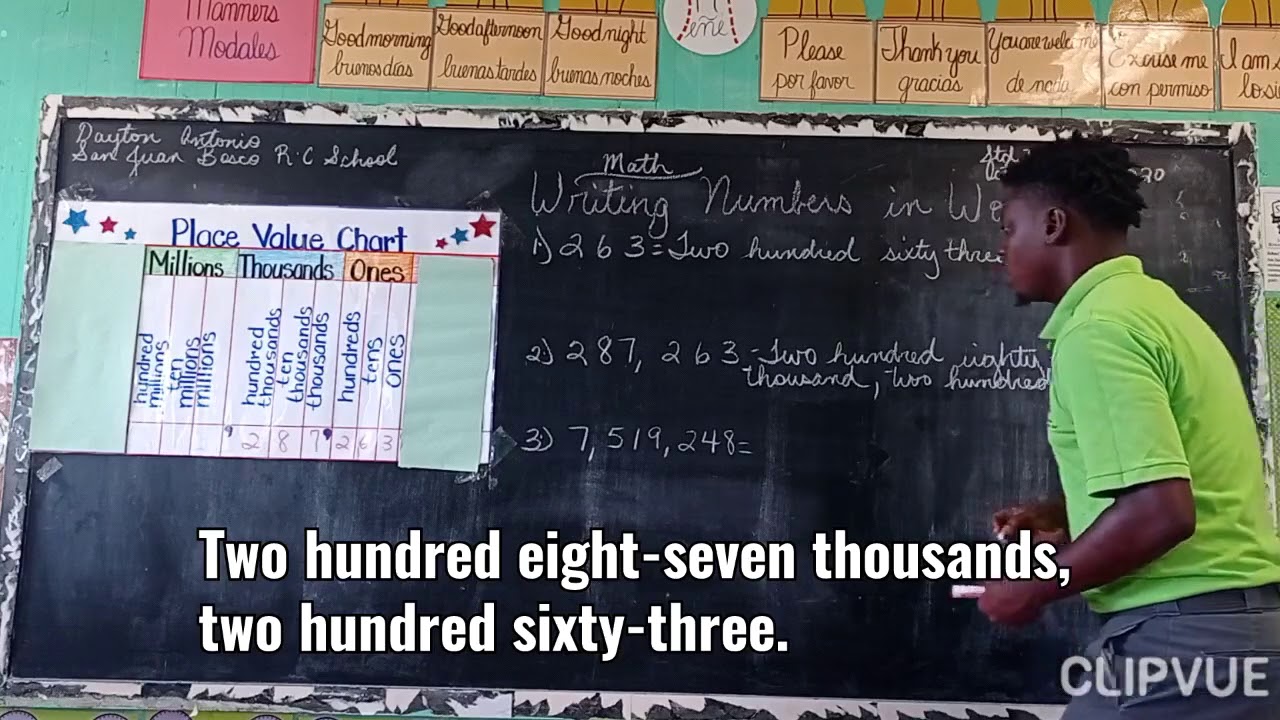 Manners
Modales
Good morning
buenos días
Good afternoon
buenas tardes
Good night
buenas noches
eñe
Please
por favor
Thank you
gracias
You are welcome
de nada
Excuse me
con permiso
I am
Dayton Antonio
San Juan Bosco R.C School
Math
Std
20
Writing Numbers in Wo
1.) 263=Two hundred sixty three
2.) 287, 263-Two hundred eighty
thousand, two hundred
3.) 7,519,248=
Place Value Chart
Millions Thousands Ones
hundred millions
ten millions
millions
hundred thousands
ten thousands
thousands
hundreds
tens
ones
, 2 8 7, 2 6 3
Two hundred eight-seven thousands,
two hundred sixty-three.
CLIPVUE